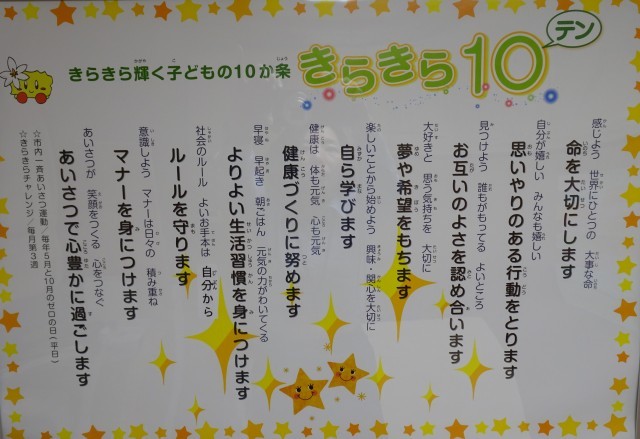 きらきら輝く子どもの10か条
きらきら10
テン
感じよう 世界にひとつの 大事な命
命を大切にします
自分が嬉しい みんなも嬉しい
思いやりのある行動をとります
見つけよう 誰もがもってる よいところ
お互いのよさを認め合います
大好きと 思う気持ちを 大切に
夢や希望をもちます
楽しいことから始めよう 興味・関心を大切に
自ら学びます
健康は 体も元気 心も元気
健康づくりに努めます
早寝 早起き 朝ごはん 元気の力がわいてくる
よりよい生活習慣を身につけます
社会のルール よいお手本は 自分から
ルールを守ります
意識しよう マナーは日々の 積み重ね
マナーを身につけます
あいさつが 笑顔をつくる 心をつなぐ
あいさつで心豊かに過ごします
☆市内一斉あいさつ運動/毎年5月と10月のゼロの日(平日)
☆きらきらチャレンジ/毎月第3週